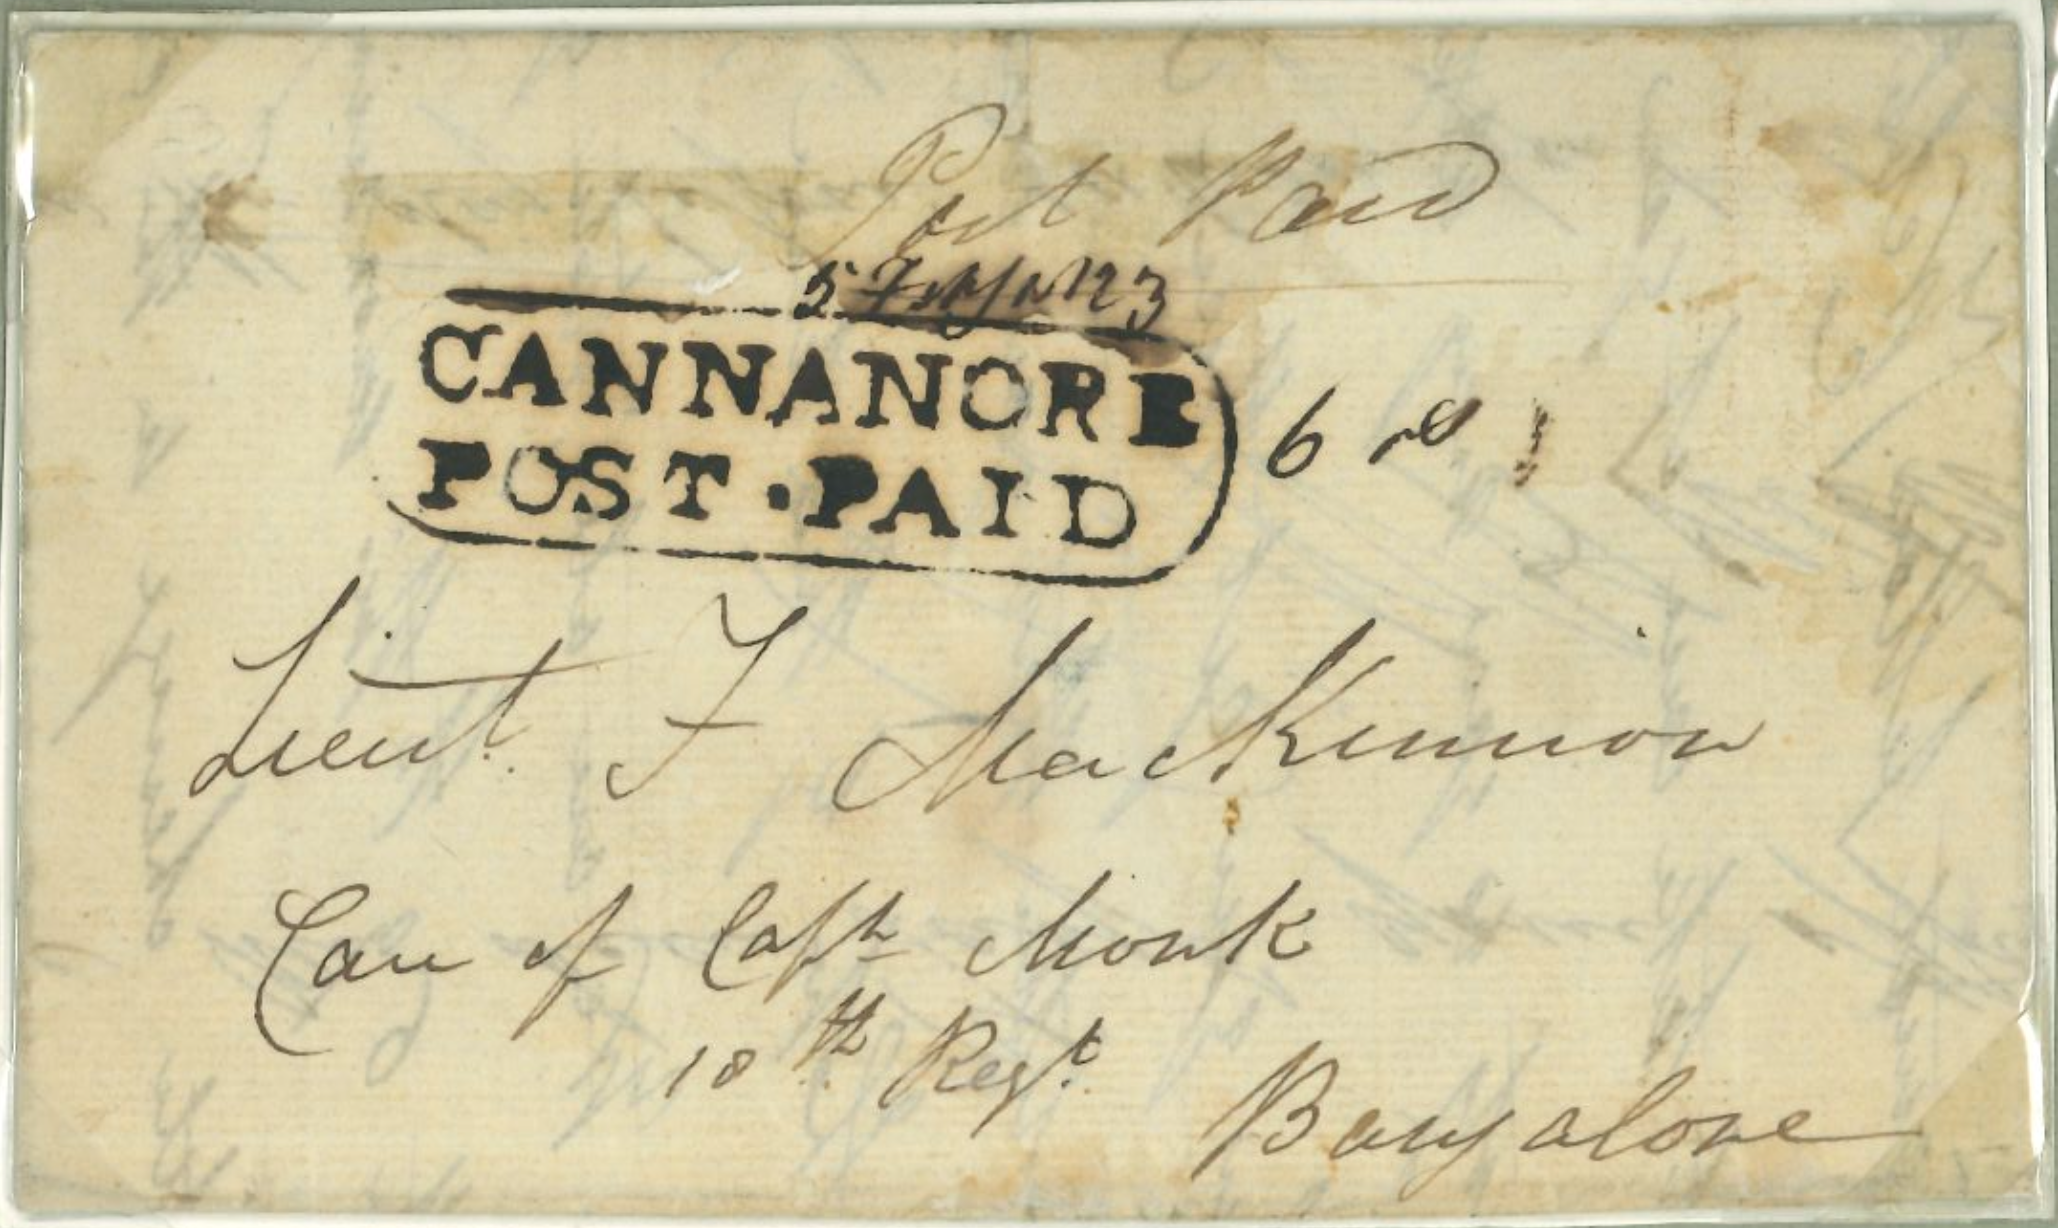 Post Paid
CANNANORE
POST·PAID
6 as
Lieut. F MacKinnon
Care of Capt. Monk
18th Regt.
Bangalore